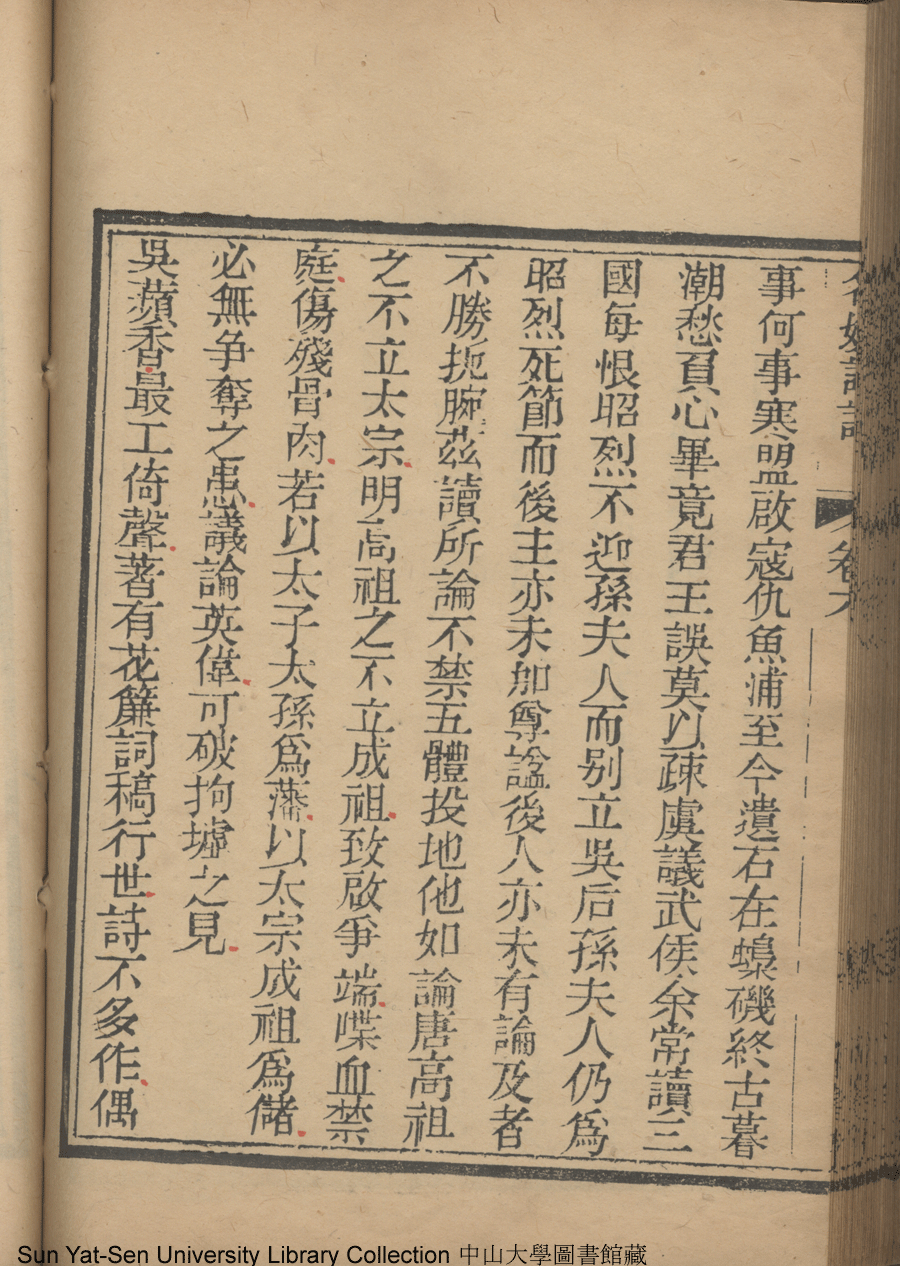 名媛詩話 卷六
事何事寒盟啟寇仇魚浦至今遺石在蟂磯終古暮
潮愁負心畢竟君王誤莫以疎虞議武侯余常讀三
國每恨昭烈不迎孫夫人而别立吳后孫夫人仍爲
昭烈死節而後主亦未加尊諡後人亦未有論及者
不勝扼腕茲讀所論不禁五體投地他如論唐高祖
之不立太宗明高祖之不立成祖致啟爭端喋血禁
庭傷殘骨肉若以太子太孫爲藩以太宗成祖爲儲
必無爭奪之患議論英偉可破拘墟之見
吳蘋香最工倚聲著有花簾詞稿行世詩不多作偶
Sun Yat-Sen University Library Collection 中山大學圖書館藏